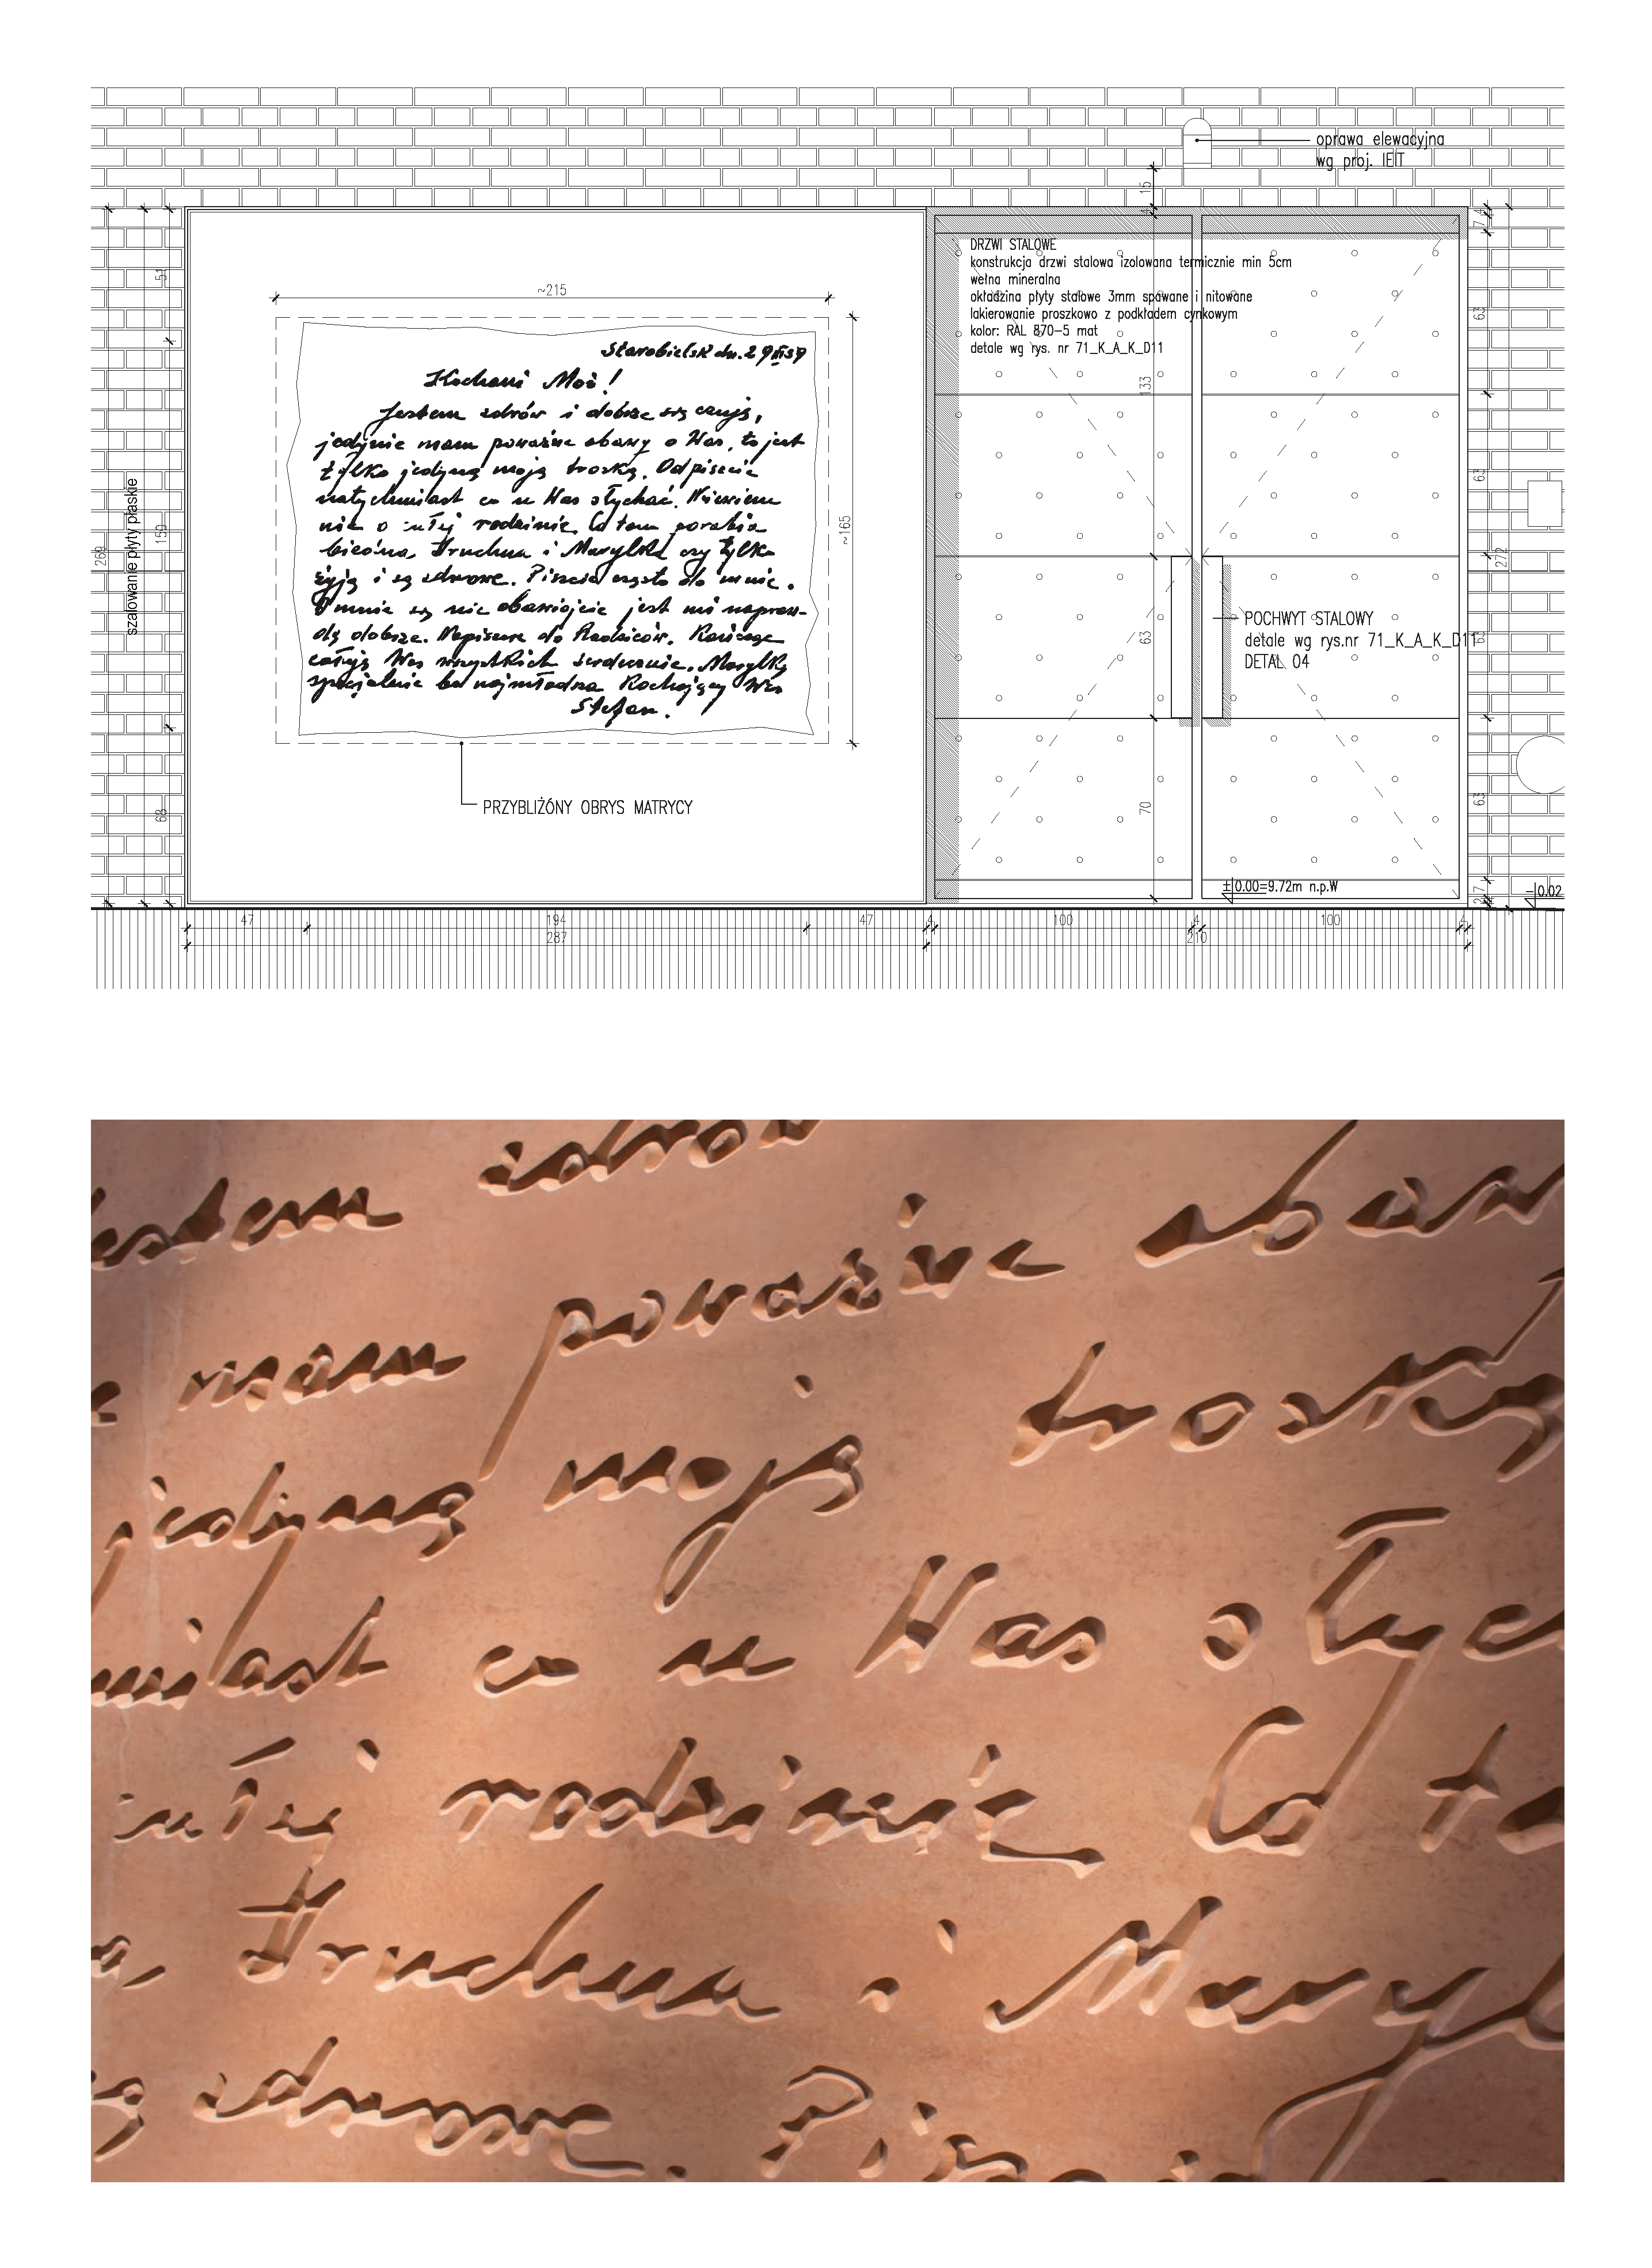 oprawa elewacyjna
wg proj. IEiT
15
4
DRZWI STALOWE
konstrukcja drzwi stalowa izolowana termicznie min 5cm
wełna mineralna
okładzina płyty stalowe 3mm spawane i nitowane
lakierowanie proszkowo z podkładem cynkowym
kolor: RAL 870-5 mat
detale wg rys. nr 71_K_A_K_D11
~215
Starobielsk dn. 29
Kochani Moi!
Jestem zdrów i dobrze się czuję,
jedynie mam poważne obawy o Was, to jest
tylko jedyną moją troską. Odpiszcie
natychmiast co u Was słychać.
nic o rodzinie. Co tam porabia
Druchna i czy tylko
żyją i są zdrowe. Piszcie często do mnie.
O mnie się nie obawiajcie jest mi napraw-
dę dobrze. do Rodziców. Kończąc
całuję Was wszystkich serdecznie.
specjalnie bo najmłodsza Kochający Was
Stefan.
~165
PRZYBLIŻÓNY OBRYS MATRYCY
szalowanie płyty płaskie
269
159
51
68
133
63
70
POCHWYT STALOWY
detale wg rys.nr 71_K_A_K_D11
DETAL 04
63
63
63
63
272
±0.00=9.72m n.p.W
-0.02
47 194 47 4 100 4 100 4
287 210
estem zdrow
mam poważne obaw
jedyną moją troską
miast co u Was słyc
rodzinie Co ta
a, Druchna i Maryl
ą zdrowe. Pisz